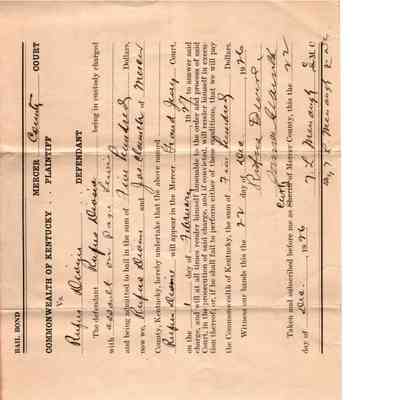 BAIL BOND
MERCER County COURT
COMMONWEALTH OF KENTUCKY . . PLAINTIFF
Vs.
Rufus . . DEFENDANT
The defendant Rufus being in custody charged
with assault on
and being admitted to bail in the sum of Two hundred Dollars,
now we, Rufus and of Mercer
County, Kentucky, hereby undertake that the above named
Rufus will appear in the Mercer Grand Jury Court,
on the 1 day of February 1927 to answer said
charge, and will at all times render himself amenable to the order and process of said
Court, in the prosecution of said charge, and if convicted, will render himself in execu-
tion thereof; or, if he shall fail to perform either of these conditions, that we will pay
the Commonwealth of Kentucky, the sum of Two hundred Dollars.
Witness our hands this the 22 day Dec 1926
Rufus
Taken and subscribed before me as Sheriff of Mercer County, this the 22
day of Dec. 1926